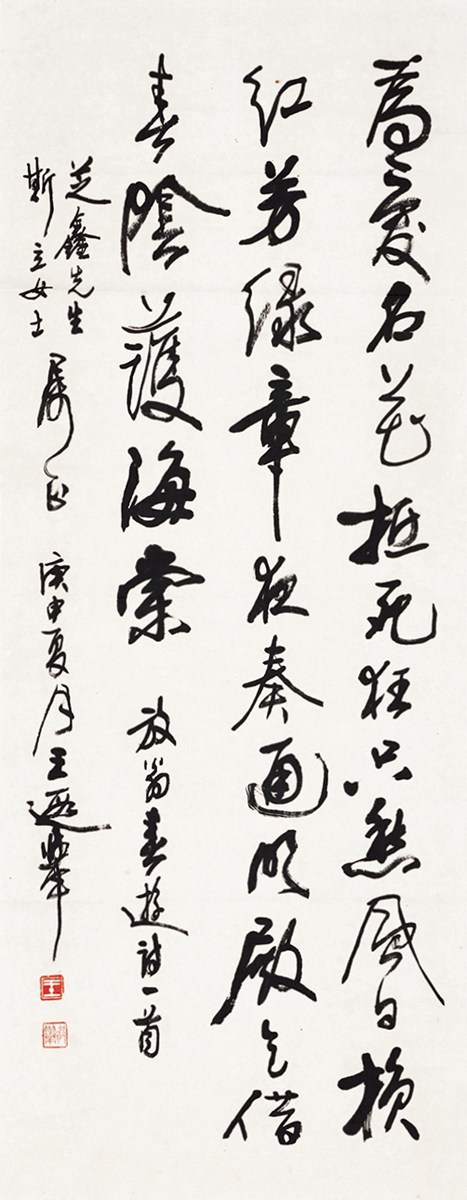 為愛名花抵死狂只愁風日損
紅芳綠章夜奏通明殿乞借
春陰護海棠 放翁春遊詩一首
芝鑫先生
斯立女士 屬正 庚申夏月王遐舉